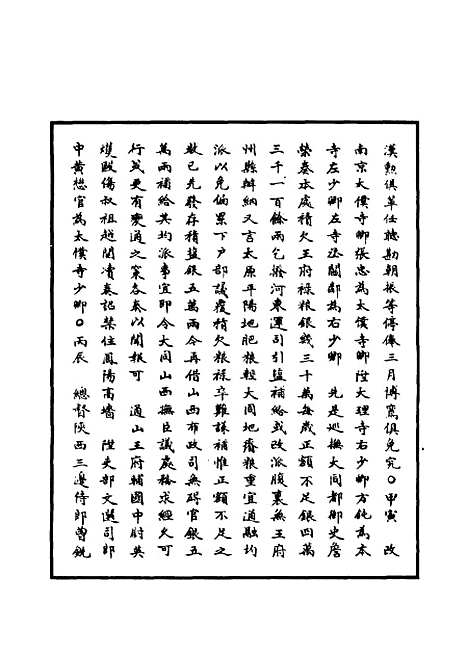 漢勲俱革任聽勘朝振等停俸三月博窩俱免究○甲寅　改
南京太僕寺卿張忠為太僕寺卿陞大理寺右少卿方鈍為本
寺左少卿左寺丞閻鄰為右少卿　先是巡撫大同都御史詹
榮奏本處積欠王府祿粮銀幾三十萬無歲正額不足銀四萬
三千一百餘兩乞發河東運引引鹽補給或改派腹裏無王府
州縣辦納又言太原平陽地肥粮輕大同地瘠粮重宜通融均
派以免偏累下户部議覆積欠粮祿卒難議補惟正額不足之
數已先發存積鹽銀五萬兩今再借山西布政司無碍官銀五
萬兩補給其均派事宜即令大同山西撫臣議處務求經久可
行或更有變通之策各奏以聞報可　通山王府輔國中尉英
熼毆傷叔祖越關凟奏詔禁住鳳陽高墻　陞吏部文選司郎
中黄懋官為太僕寺少卿○丙辰　總督陝西三邊侍郎曾銑